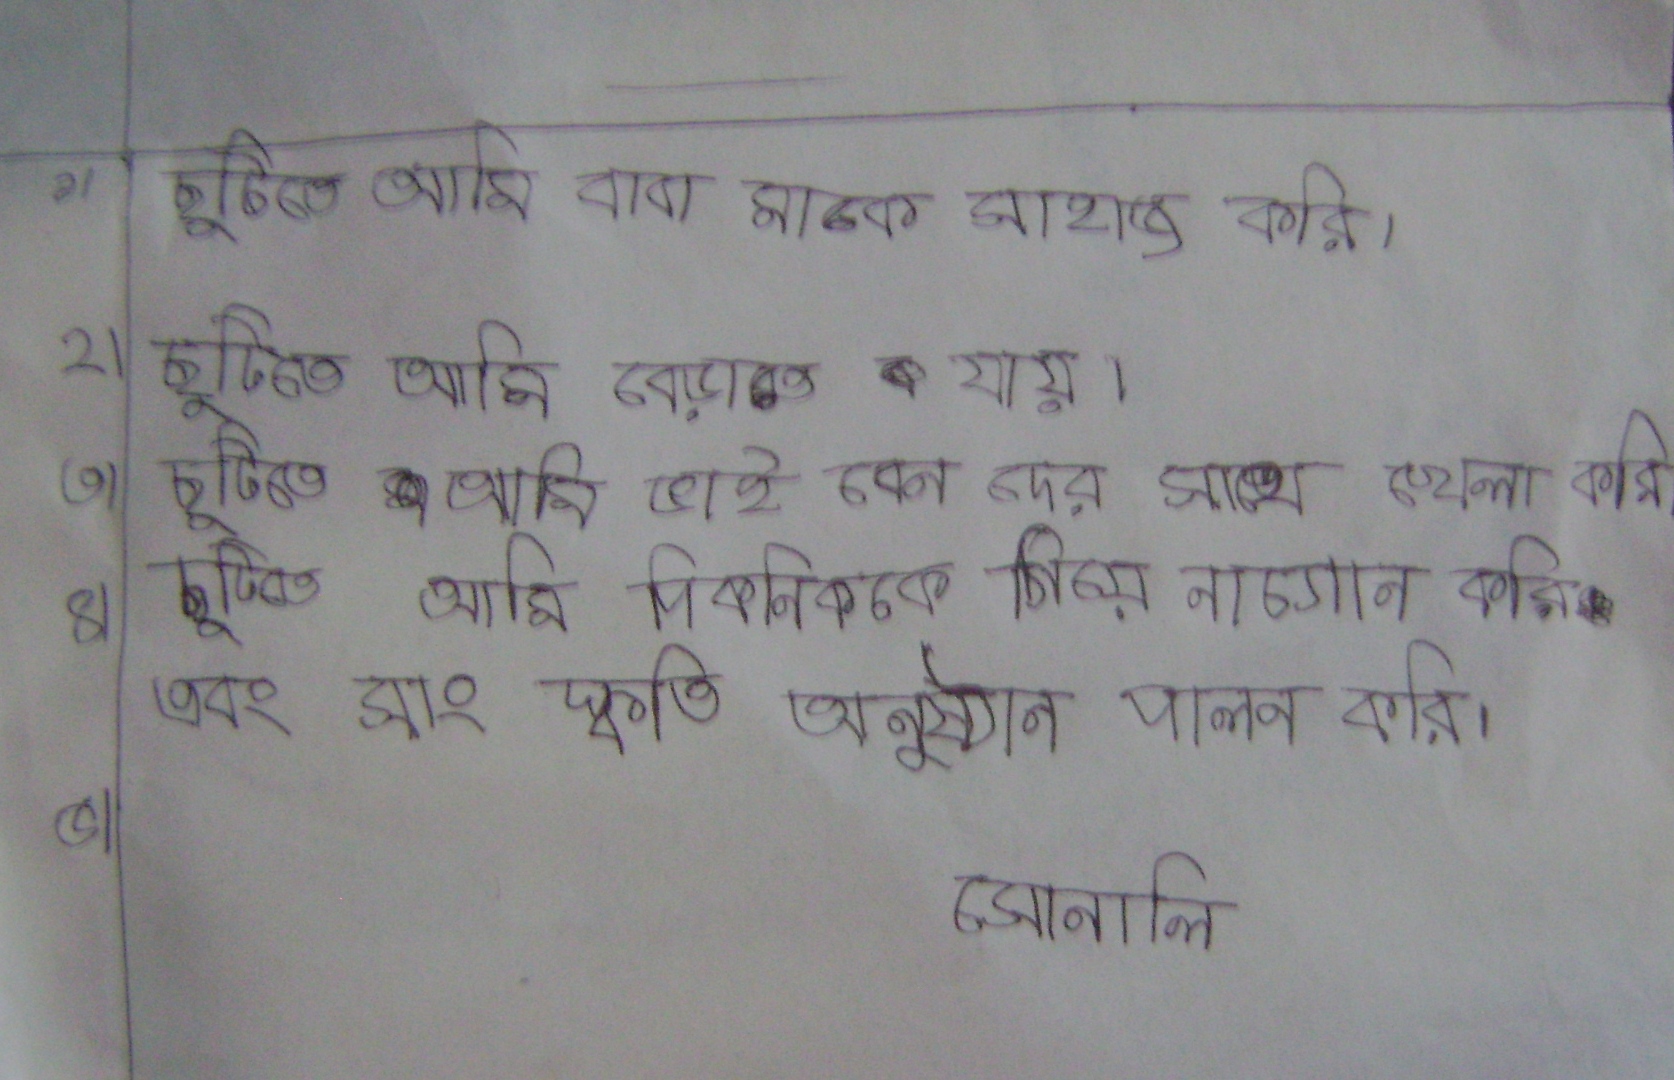 ১। ছুটিতে আমি বাবা মাকে সাহায্য করি।
২। ছুটিতে আমি বেড়াতে যায়।
৩। ছুটিতে আমি ভাই বোন দের সাথে খেলা করি
৪। ছুটিতে আমি পিকনিককে গিয়ে নাচগান করি
এবং সাং স্কৃতি অনুষ্ঠান পালন করি।
৫।
সোনালি